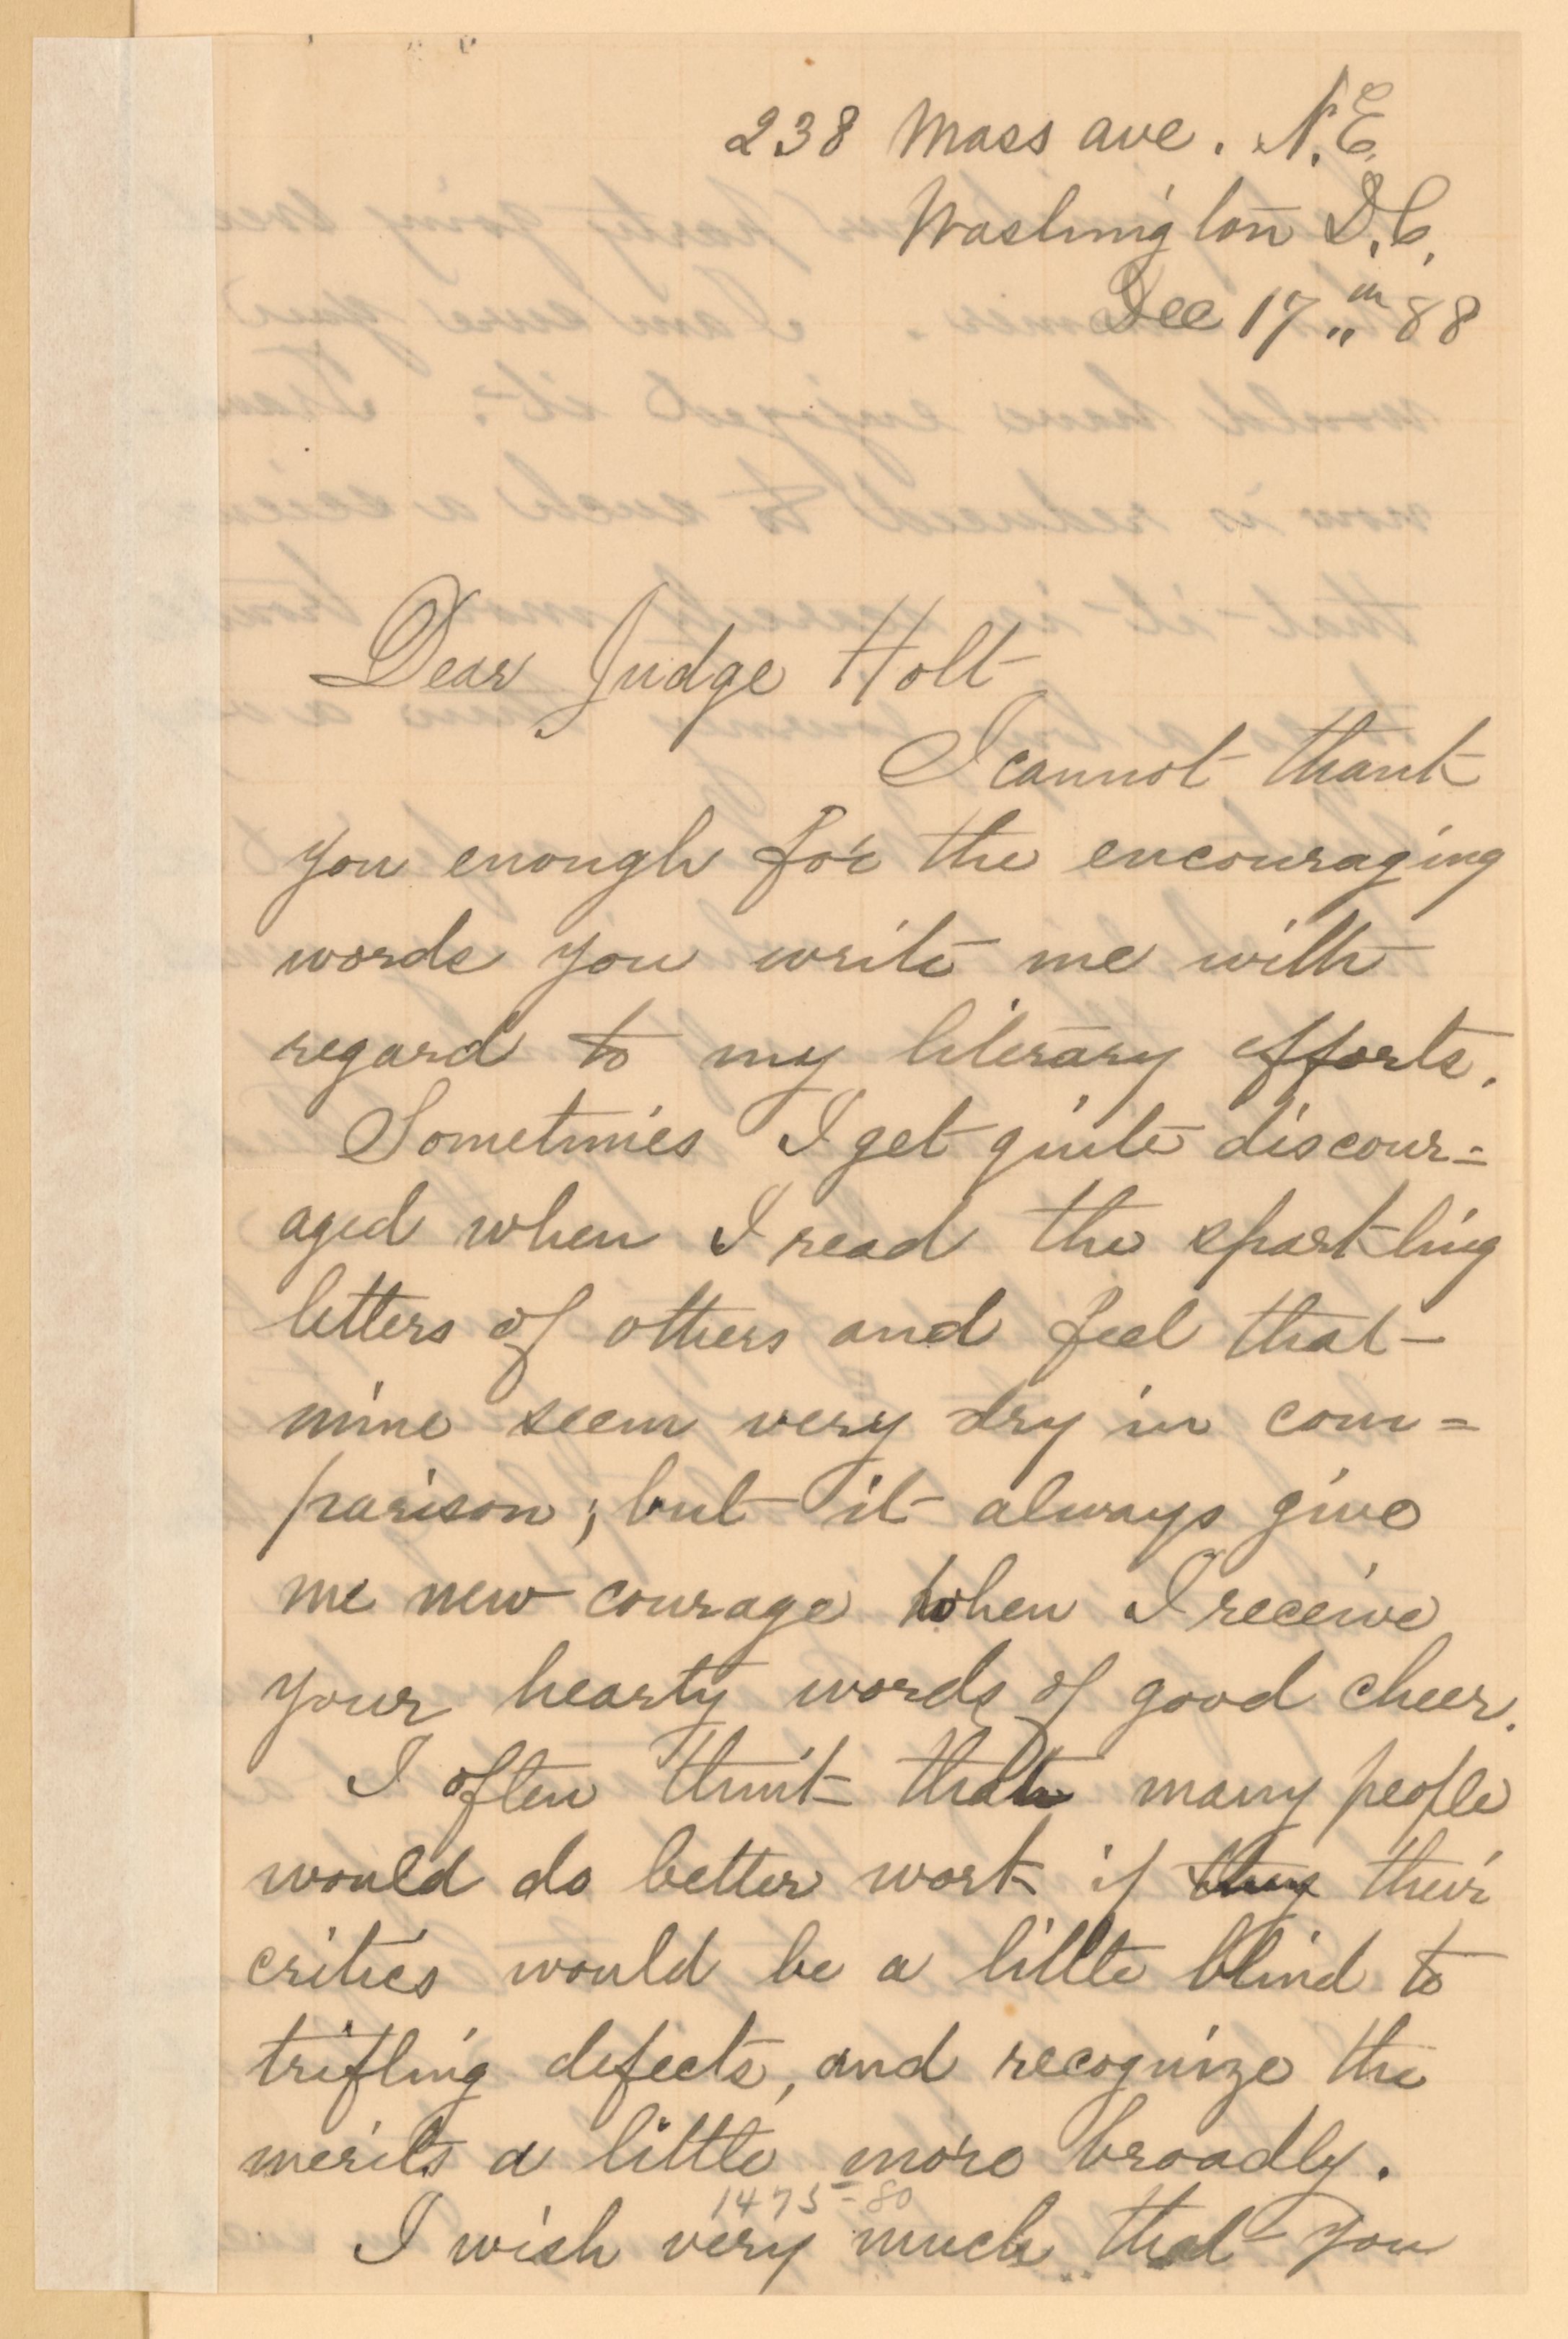 238 Mass ave. N.E.
Washington D.C.
Dec 17th 88
Dear Judge Holt
I cannot thank
you enough for the encouraging
words you write me with
regard to my literary efforts.
Sometimes I get quite discour=
aged when I read the sparkling
letters of others and feel that
mine seem very dry in com=
parison; but it always give
me new courage when I receive
your hearty words of good cheer.
I often think that many people
would do better work if they their
critics would be a little blind to
trifling defects, and recognize the
merits a little more broadly.
1475-80
I wish very much that you